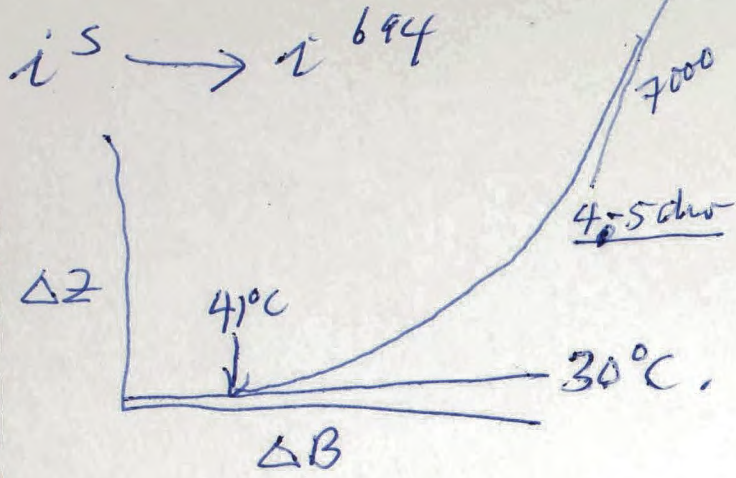 i^s → i^694
7000
4-5 div
ΔZ
41°C
30°C.
ΔB